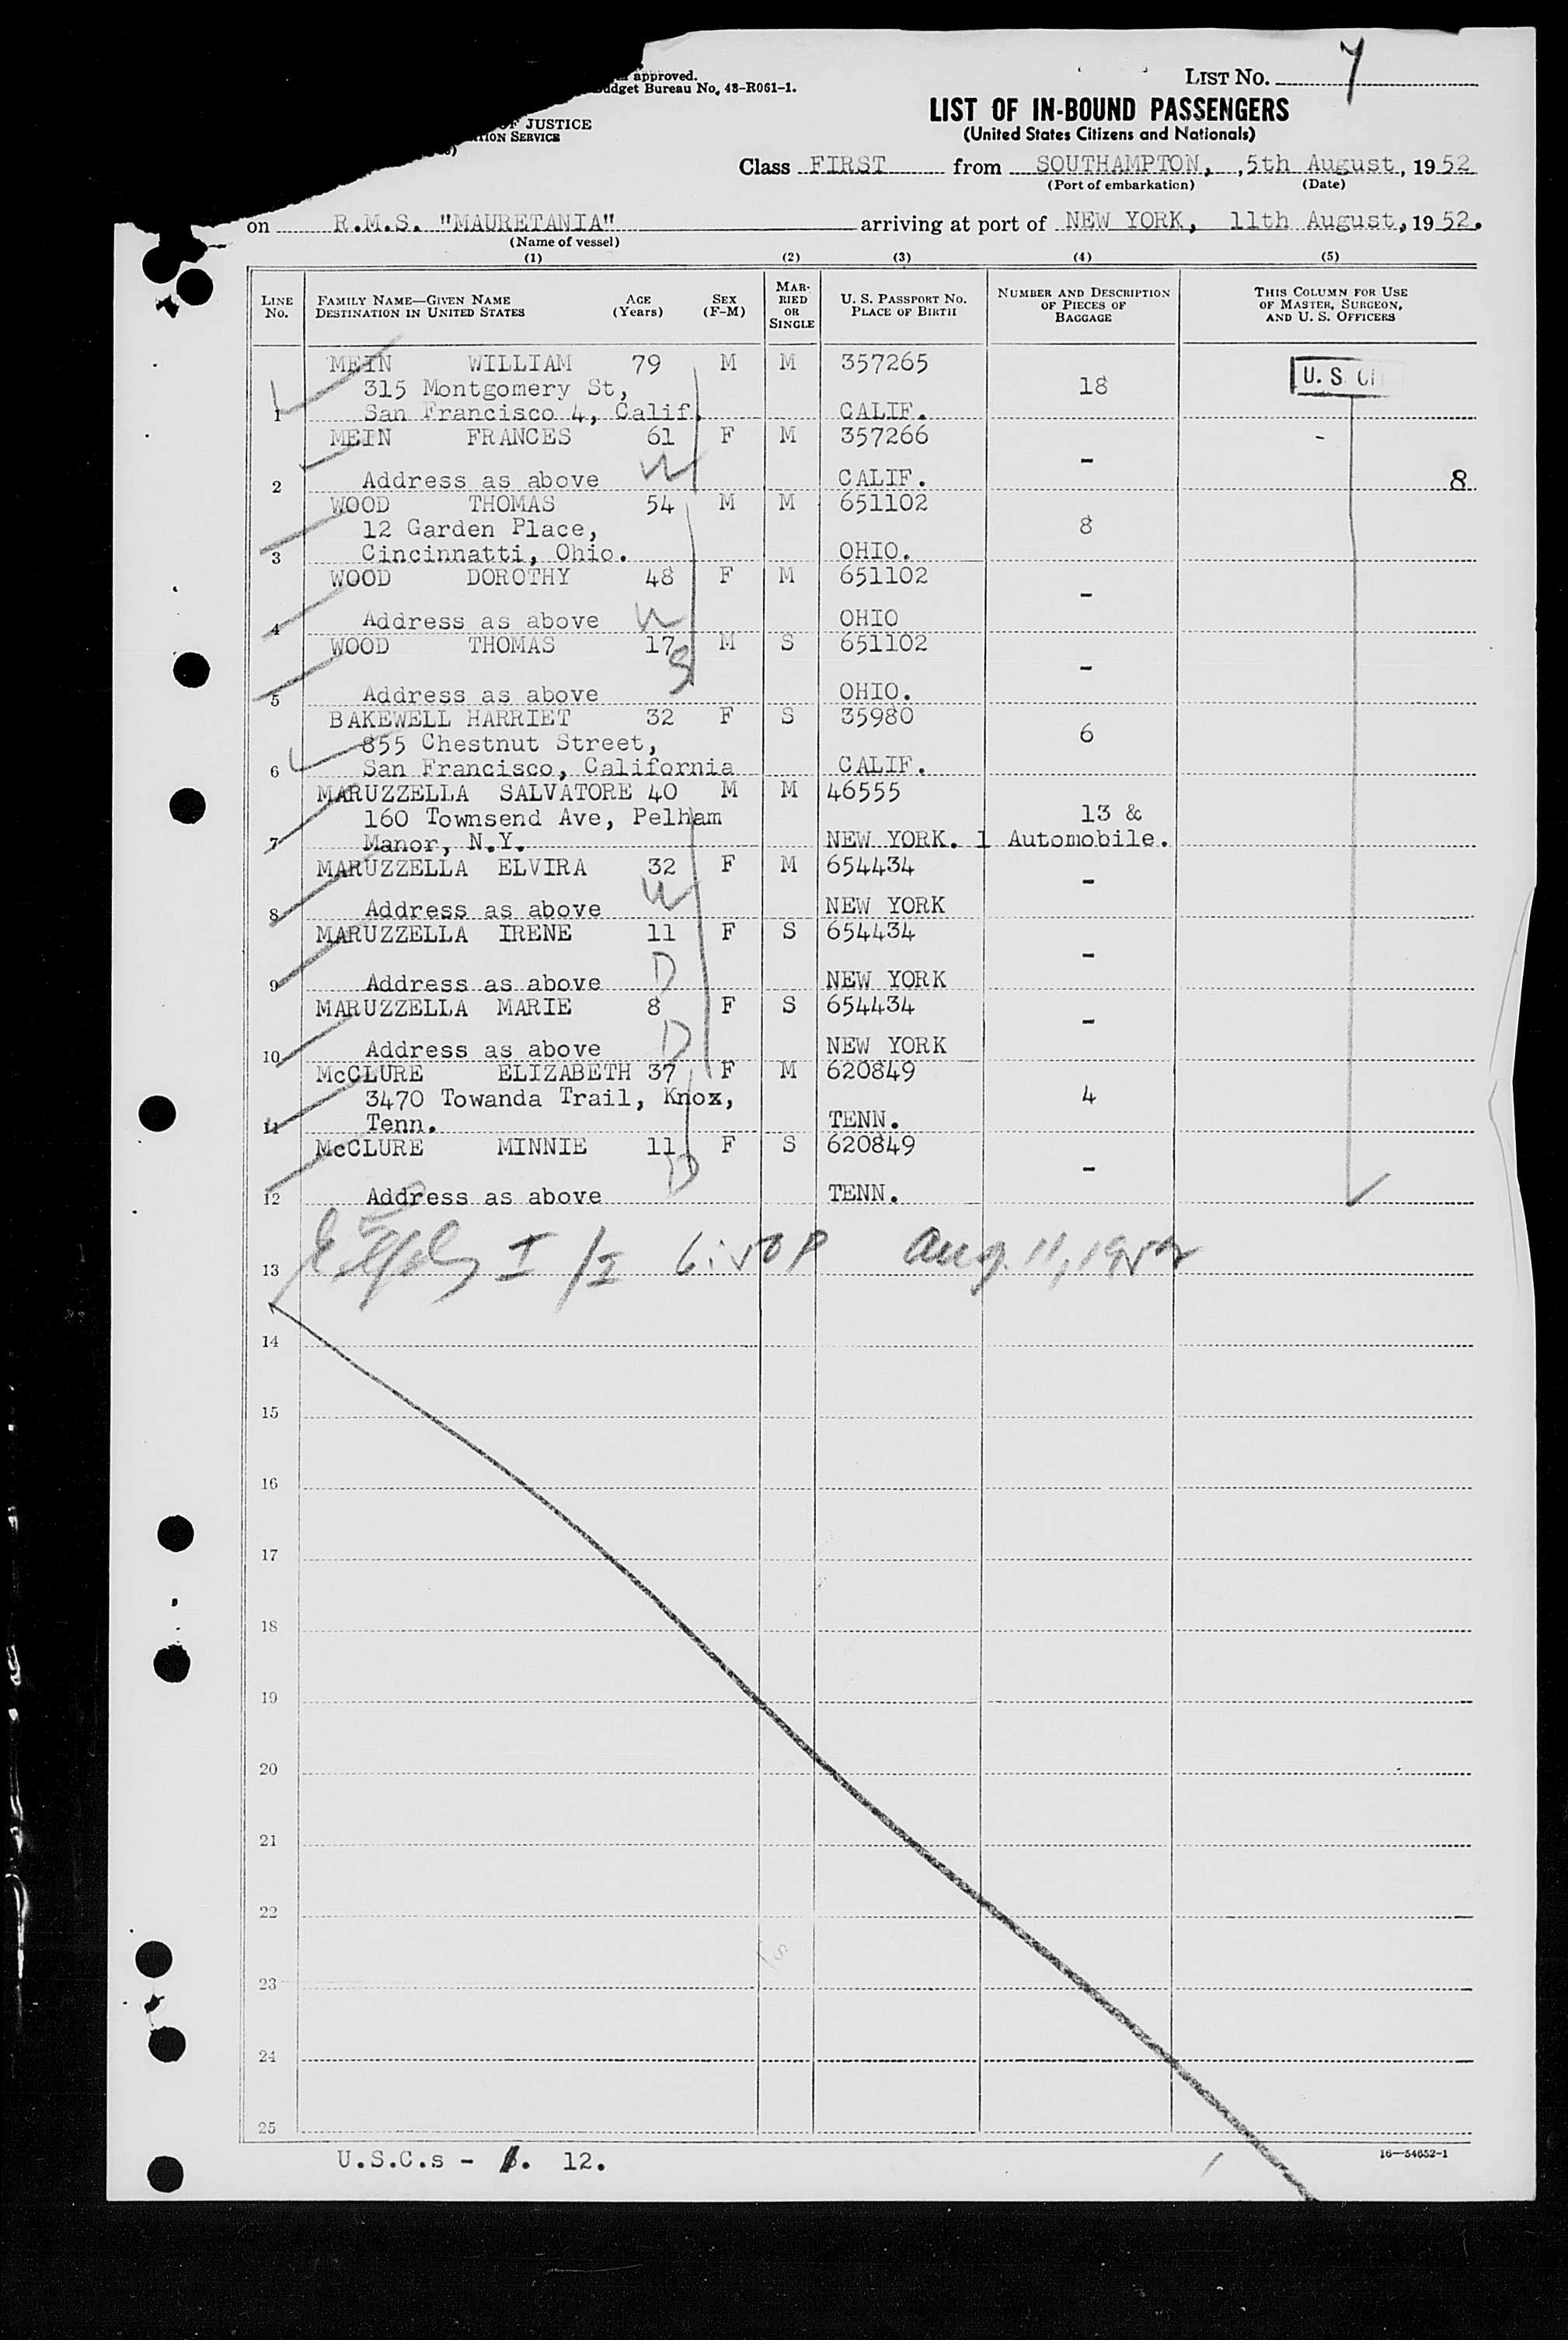 approved.
Budget Bureau No. 43-R061-1.
LIST No. 7
LIST OF IN-BOUND PASSENGERS
(United States Citizens and Nationals)
OF JUSTICE
SERVICE
Class FIRST from SOUTHAMPTON, , 5th August, 1952
(Port of embarkation) (Date)
on R.M.S. "MAURETANIA" arriving at port of NEW YORK, 11th August, 1952.
(Name of vessel)
(1) (2) (3) (4) (5)
LINE No. FAMILY NAME—GIVEN NAME DESTINATION IN UNITED STATES AGE (Years) SEX (F-M) MARRIED OR SINGLE U. S. PASSPORT No. PLACE OF BIRTH NUMBER AND DESCRIPTION OF PIECES OF BAGGAGE THIS COLUMN FOR USE OF MASTER, SURGEON, AND U. S. OFFICERS
MEIN WILLIAM 79 M M 357265
315 Montgomery St, 18 U. S. CIT
1 San Francisco 4, Calif. CALIF.
MEIN FRANCES 61 F M 357266 -
W -
2 Address as above CALIF. 8
WOOD THOMAS 54 M M 651102
12 Garden Place, 8
3 Cincinnatti, Ohio. OHIO.
WOOD DOROTHY 48 F M 651102
-
4 Address as above W OHIO
WOOD THOMAS 17 M S 651102
S -
5 Address as above OHIO.
BAKEWELL HARRIET 32 F S 35980
855 Chestnut Street, 6
6 San Francisco, California CALIF.
MARUZZELLA SALVATORE 40 M M 46555
160 Townsend Ave, Pelham 13 &
7 Manor, N.Y. NEW YORK. 1 Automobile.
MARUZZELLA ELVIRA 32 F M 654434
W -
8 Address as above NEW YORK
MARUZZELLA IRENE 11 F S 654434
-
9 Address as above D NEW YORK
MARUZZELLA MARIE 8 F S 654434
-
10 Address as above D NEW YORK
McCLURE ELIZABETH 37 F M 620849
3470 Towanda Trail, Knox, 4
11 Tenn. TENN.
McCLURE MINNIE 11 F S 620849
D -
12 Address as above TENN.
13 I/I 6:50 P Aug. 11, 1952
14
15
16
17
18
19
20
21
22
23
24
25
U.S.C.s - 12.
16—54652-1